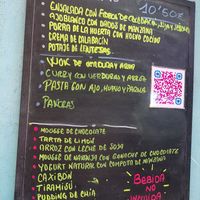 10'50€
ENSALADA CON
AJOBLANCO CON DADOS DE MANZANA
PORRA DE LA HUERTA CON HUEVO COCIDO
CREMA DE CALABACÍN
POTAJE DE LENTEJAS
WOK DE VERDURA Y ARROZ
CURRY CON VERDURAS Y ARROZ
PASTA CON AJO, HUEVO Y PEREJIL
MOUSSE DE CHOCOLATE
TARTA DE LIMÓN
ARROZ CON LECHE DE SOJA
MOUSSE DE NARANJA CON GANACHE DE CHOCOLATE
YOGURT NATURAL CON COMPOTA DE MANZANA
TIRAMISÚ
PUDDING DE CHÍA
BEBIDA
NO
INCLUIDA